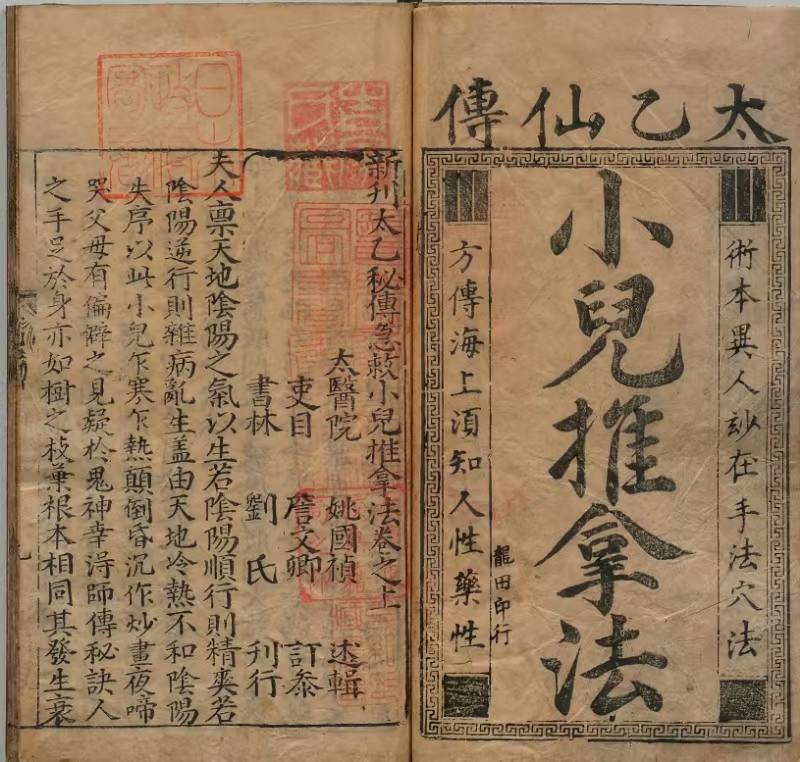 太乙仙傳
術本異人玅在手法穴法
小兒推拿法
龍田印行
方傳海上須知人性藥性
新刋太乙秘傳急救小兒推拿法卷之上
太醫院 姚國禎 述輯
吏目 詹文卿 訂叅
書林 劉氏 刋行
夫人禀天地陰陽之氣以生若陰陽順行則精爽若
陰陽逆行則雜病亂生盖由天地冷熱不和陰陽
失序以此小兒乍寒乍熱顛倒昏沉作炒晝夜啼
哭父母有偏僻之見疑於鬼神幸淂師傳秘訣人
之手足於身亦如樹之枝葉根本相同其發生衰